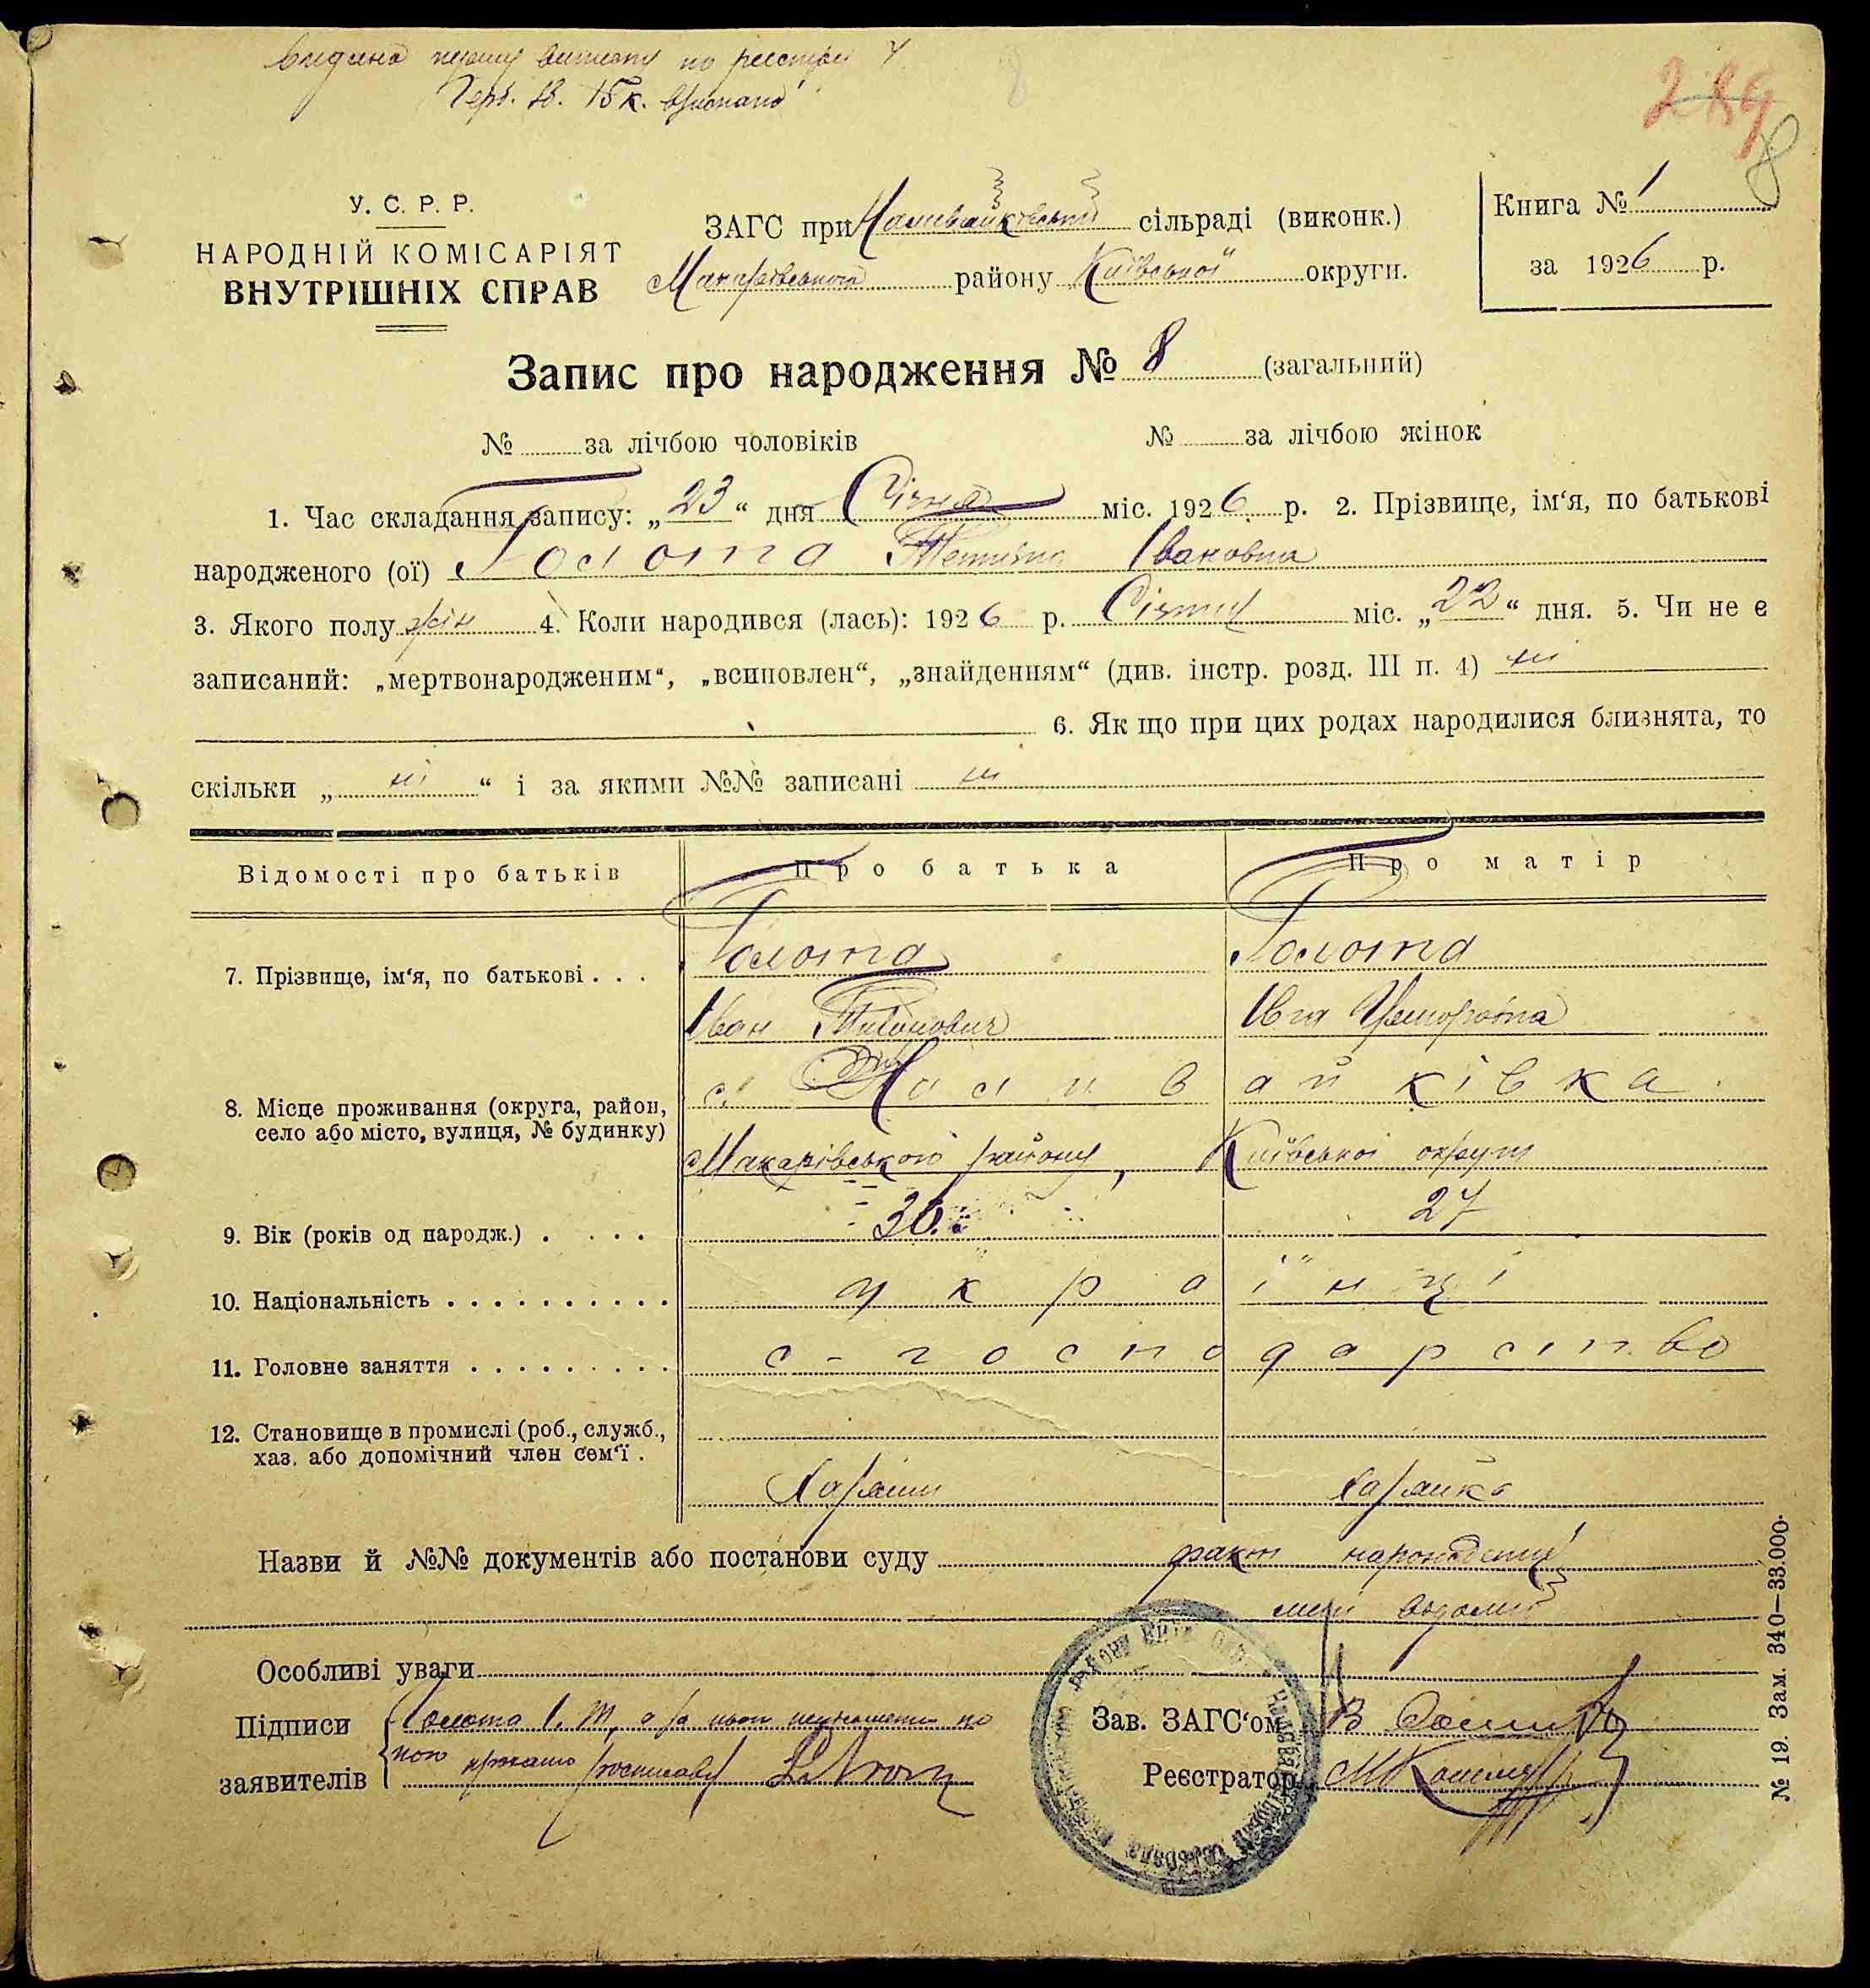 по реєстру
15 к.
289
8
У. С. Р. Р.
НАРОДНІЙ КОМІСАРІЯТ
ВНУТРІШНІХ СПРАВ
ЗАГС при Наливайківській сільраді (виконк.)
Макарівського району Київської округи.
Книга № 1
за 1926 р.
Запис про народження № 8 (загальний)
№ за лічбою чоловіків № за лічбою жінок
1. Час складання запису: „23“ дня Січня міс. 1926 р. 2. Прізвище, ім‘я, по батькові
народженого (ої) Голота Тетяна Івановна
3. Якого полу жін 4. Коли народився (лась): 1926 р. Січня міс. „22“ дня. 5. Чи не є
записаний: „мертвонародженим“, „всиновлен“, „знайденням“ (див. інстр. розд. III п. 4) ні
6. Як що при цих родах народилися близнята, то
скільки „ ні “ і за якими №№ записані ні
Відомості про батьків Про батька Про матір
7. Прізвище, ім‘я, по батькові . . . Голота Голота
Іван
8. Місце проживання (округа, район,
село або місто, вулиця, № будинку)
с. Наливайківка
Макарівського району, Київської округи
9. Вік (років од народж.) . . . . 36. 27
10. Національність . . . . . . . . . . українці
11. Головне заняття . . . . . . . . . с-господарство
12. Становище в промислі (роб., служб.,
хаз. або допомічний член сем‘ї .
Хазяин хазяйка
Назви й №№ документів або постанови суду факт народження
мені відомий
Особливі уваги
Підписи Голота І. Т, а за його
заявителів
Зав. ЗАГС‘ом
Реєстратор
№ 19. Зам. 340—33.000.